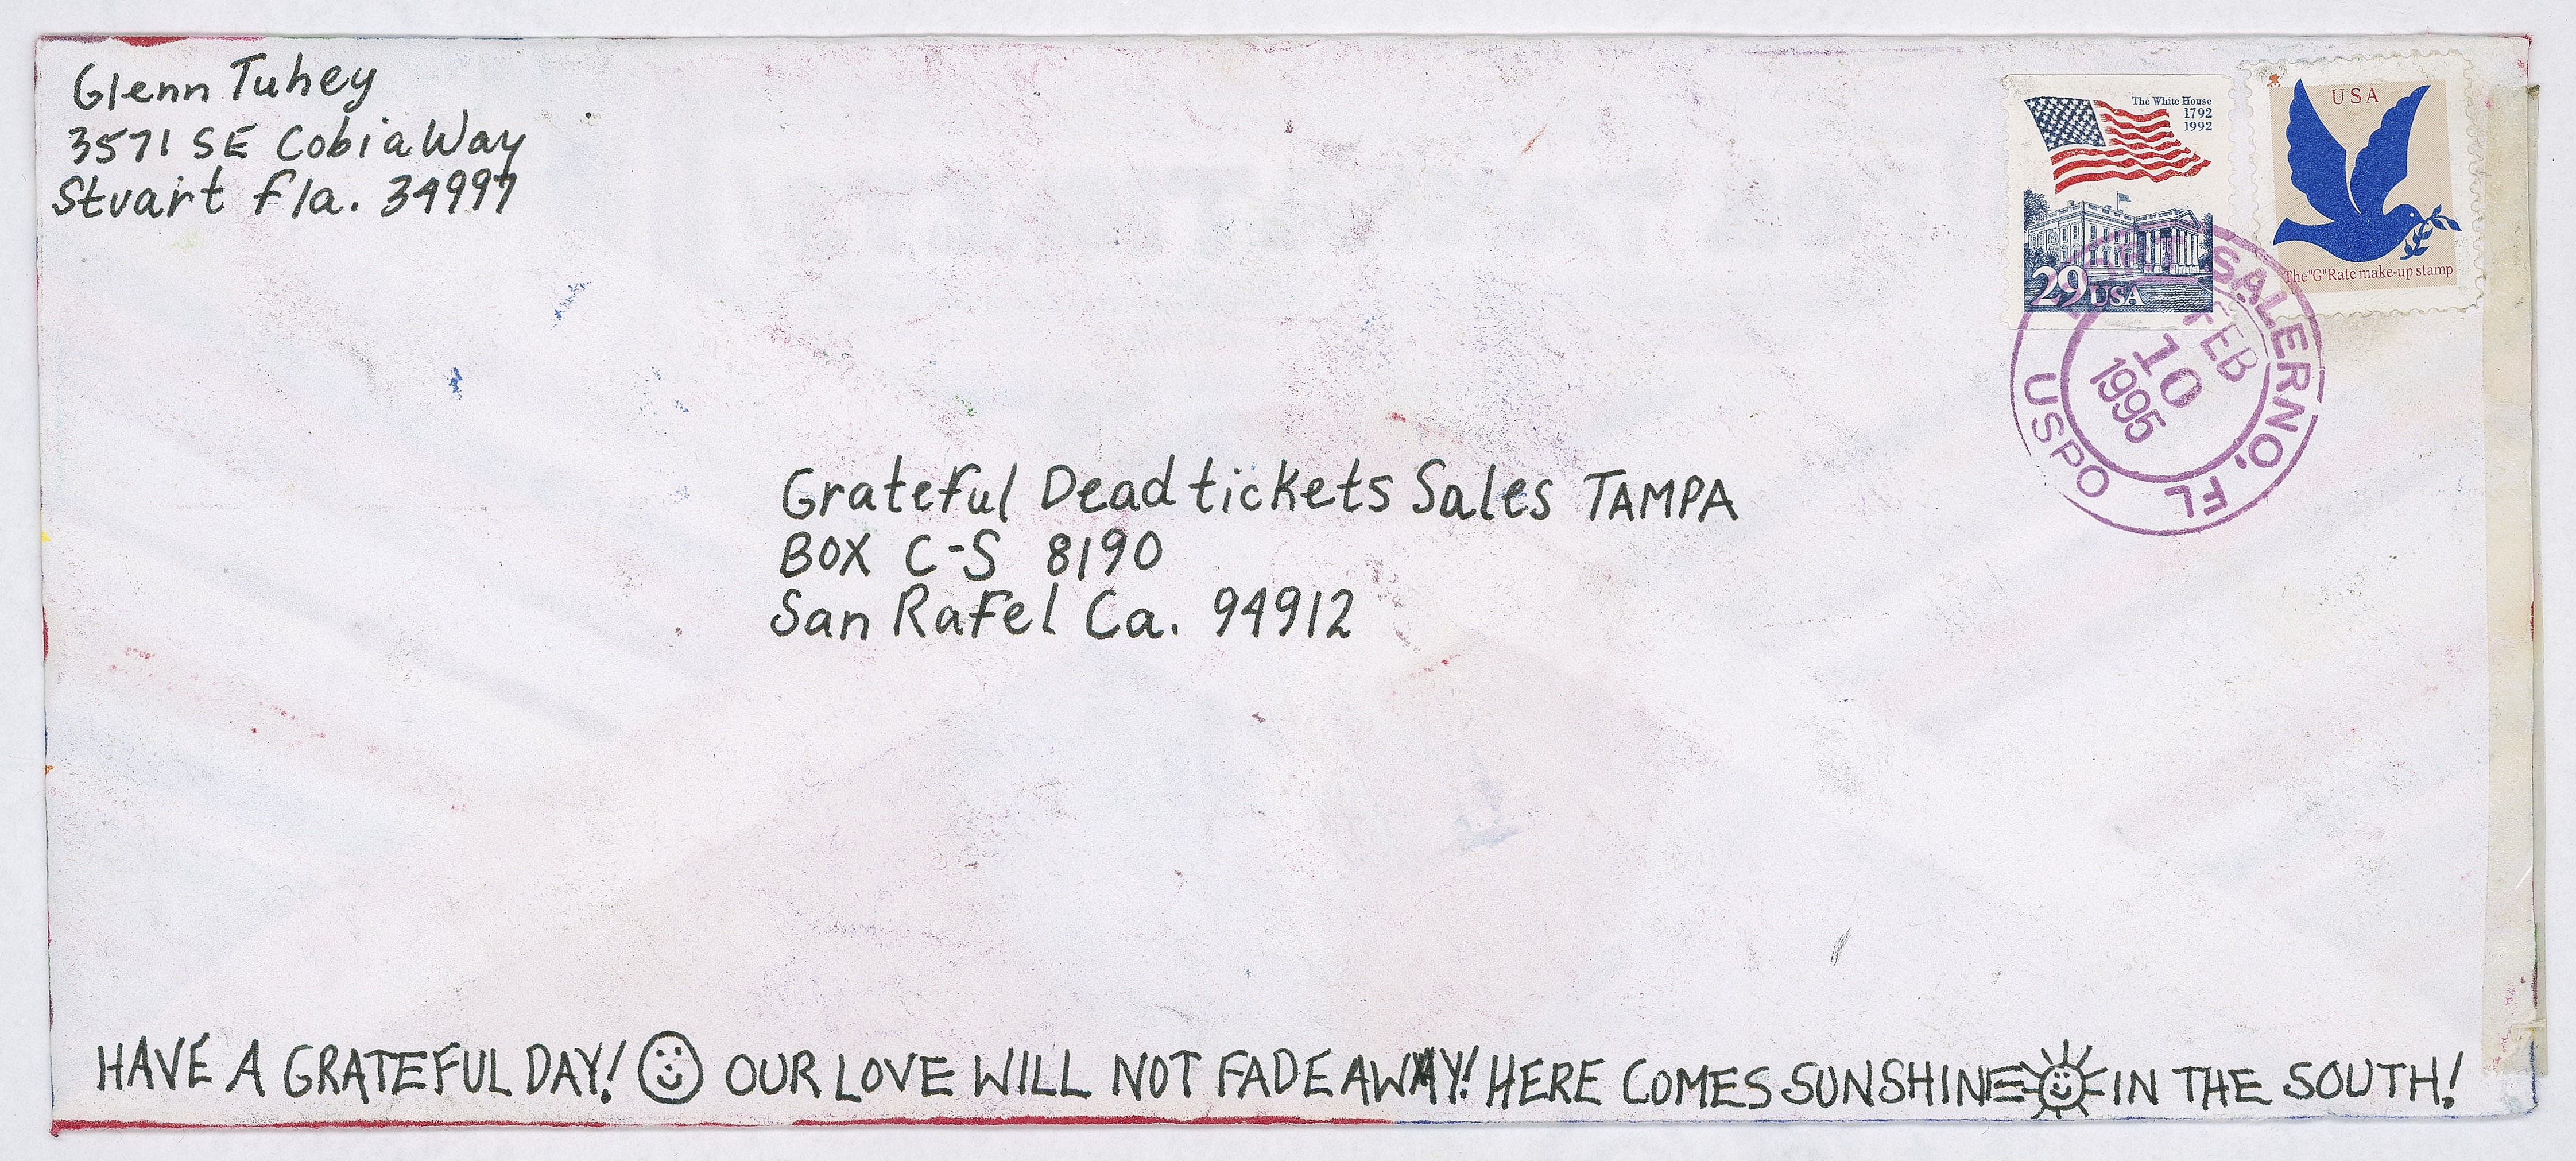 Glenn Tuhey
3571 SE Cobia Way
Stuart Fla. 34997
The White House
1792
1992
29 USA
USA
The "G" Rate make-up stamp
SALERNO, FL
FEB
10
1995
USPO
Grateful Dead tickets Sales TAMPA
BOX C-S 8190
San Rafel Ca. 94912
HAVE A GRATEFUL DAY! OUR LOVE WILL NOT FADE AWAY! HERE COMES SUNSHINE IN THE SOUTH!